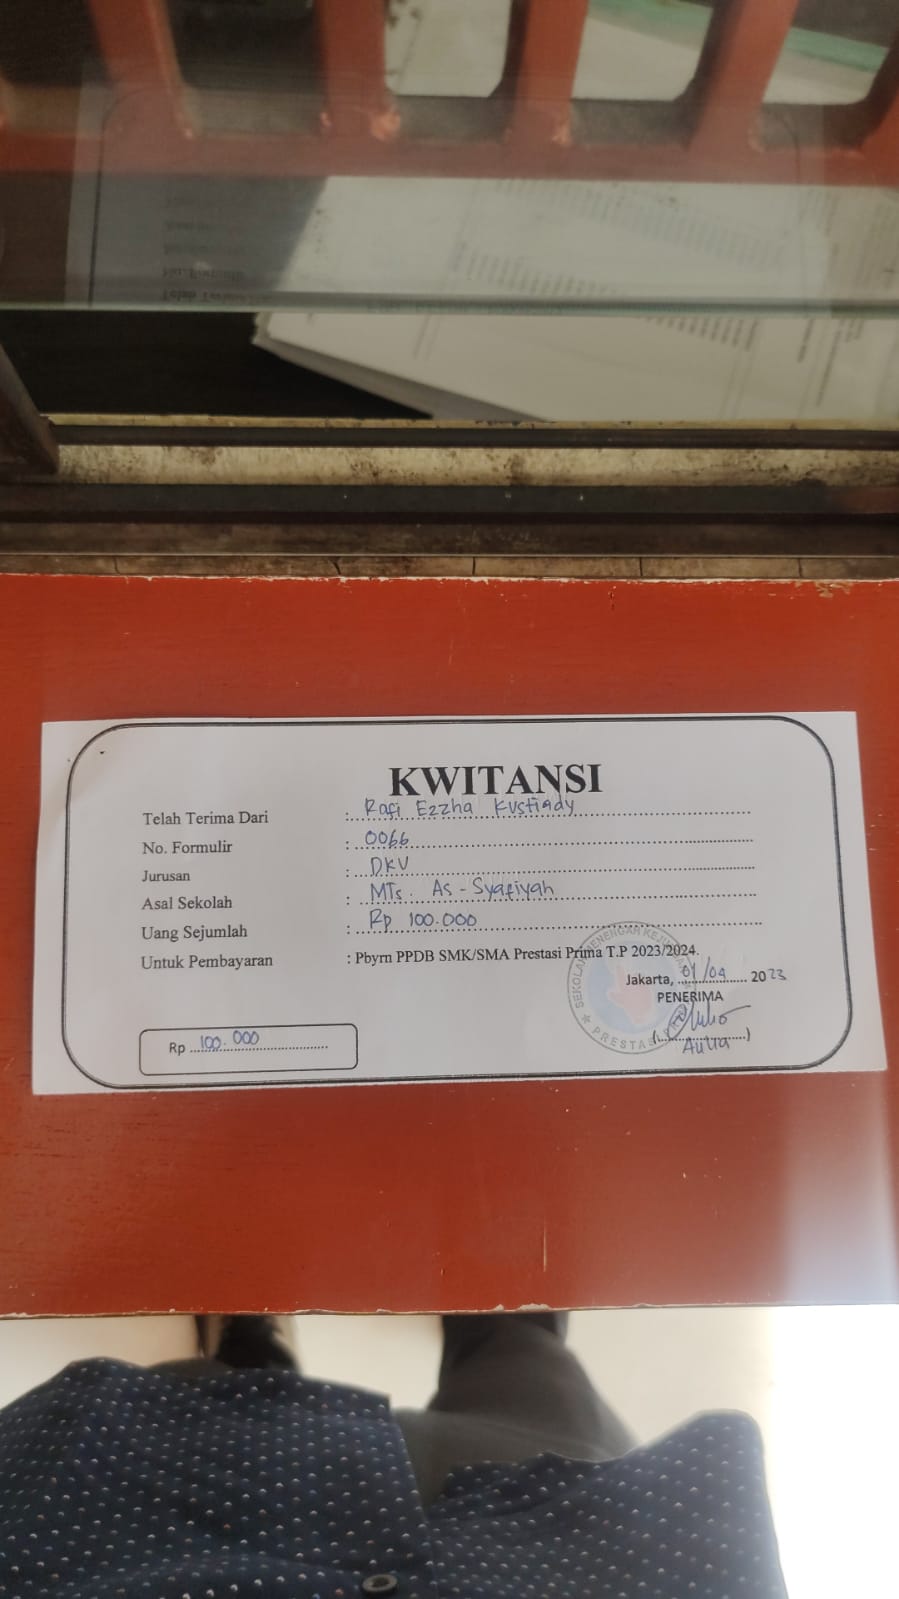 KWITANSI
Telah Terima Dari : Rafi Ezzha Kustiady
No. Formulir : 0066
Jurusan : DKV
Asal Sekolah : MTs. As-Syafiyah
Uang Sejumlah : Rp 100.000
Untuk Pembayaran : Pbyrn PPDB SMK/SMA Prestasi Prima T.P 2023/2024.
Jakarta, 01/04 2023
PENERIMA
Rp 100.000
SEKOLAH MENENGAH KEJURUAN
PRESTASI